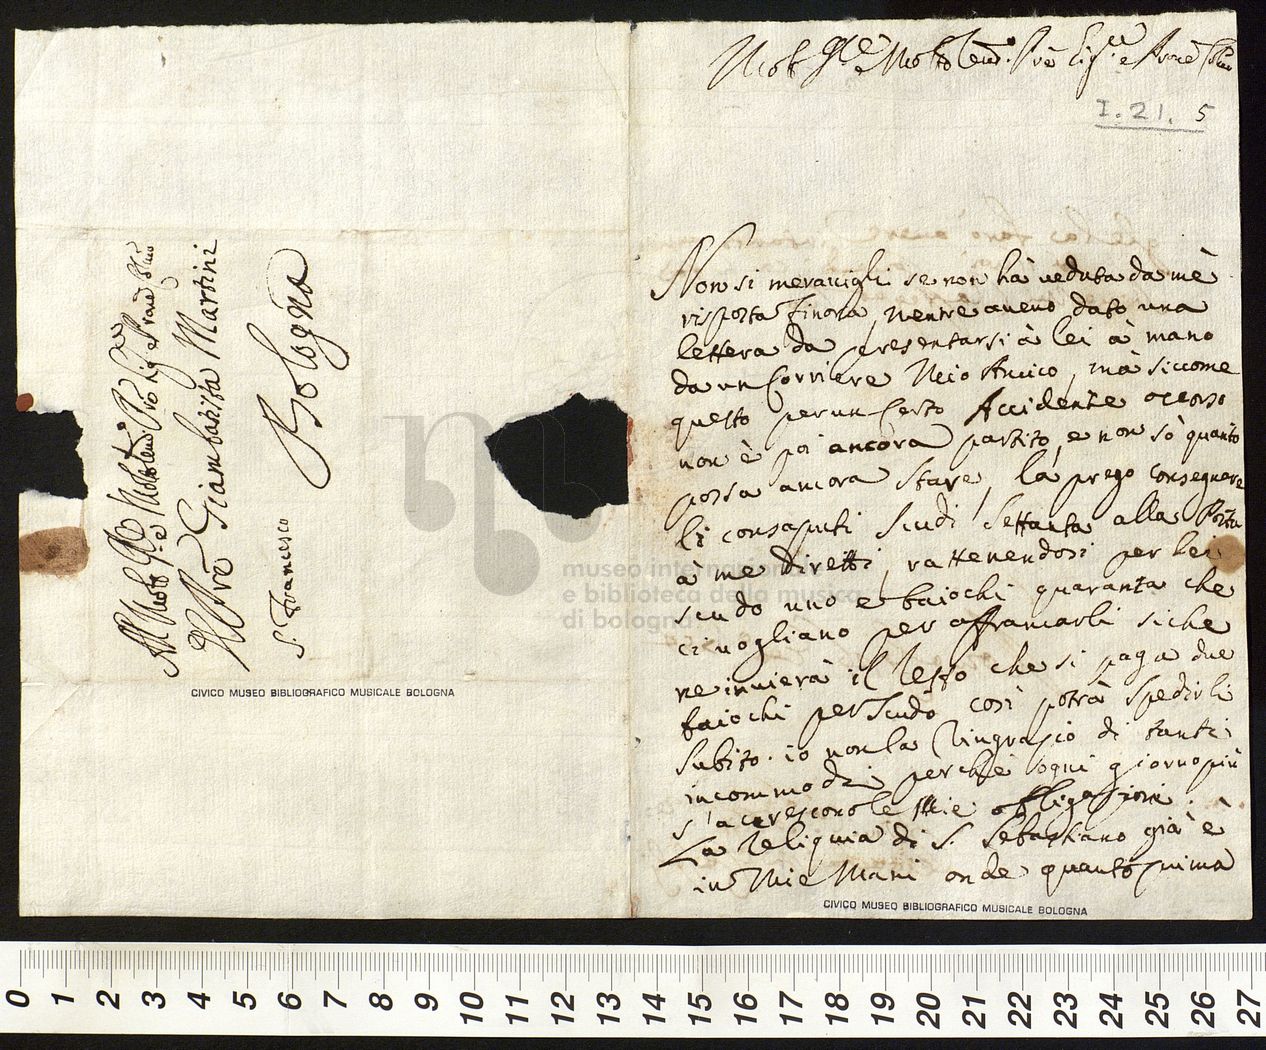 Al Molto Rdo
Il Pre Giambatista Martini
Bologna
S. Francesco
CIVICO MUSEO BIBLIOGRAFICO MUSICALE BOLOGNA
I. 21. 5
Non si meravigli se non hà veduta da mè
risposta finora, mentre avevo dato una
lettera da presentarsi à lei à mano
da un Corriere Mio Amico, mà siccome
questo per un Certo Accidente occorso
non è poi ancora partito, e non sò quanto
possa ancora stare, la prego consegnare
li consaputi scudi settanta alla Posta
à me diretti, rattenendosi per lei
scudo uno e baiochi quaranta che
ci vogliano per affrancarli siche
ne invierà il resto che si paga due
baiochi per scudo così potrà spedirli
subito. io non la ringrazio di tanti
incommodi perchè ogni giorno più
s'accrescono le Mie obbligazioni.
La Reliquia di S. Sebastiano già è
in Mie Mani onde quanto prima
CIVICO MUSEO BIBLIOGRAFICO MUSICALE BOLOGNA
museo internazionale
e biblioteca della musica
di bologna
0 1 2 3 4 5 6 7 8 9 10 11 12 13 14 15 16 17 18 19 20 21 22 23 24 25 26 27